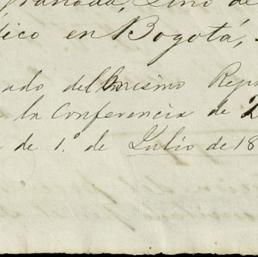 granada, sino de
tico en Bogotá,
ado del mismo Rep
la Conferencia de 2
de 1º de Julio de 18